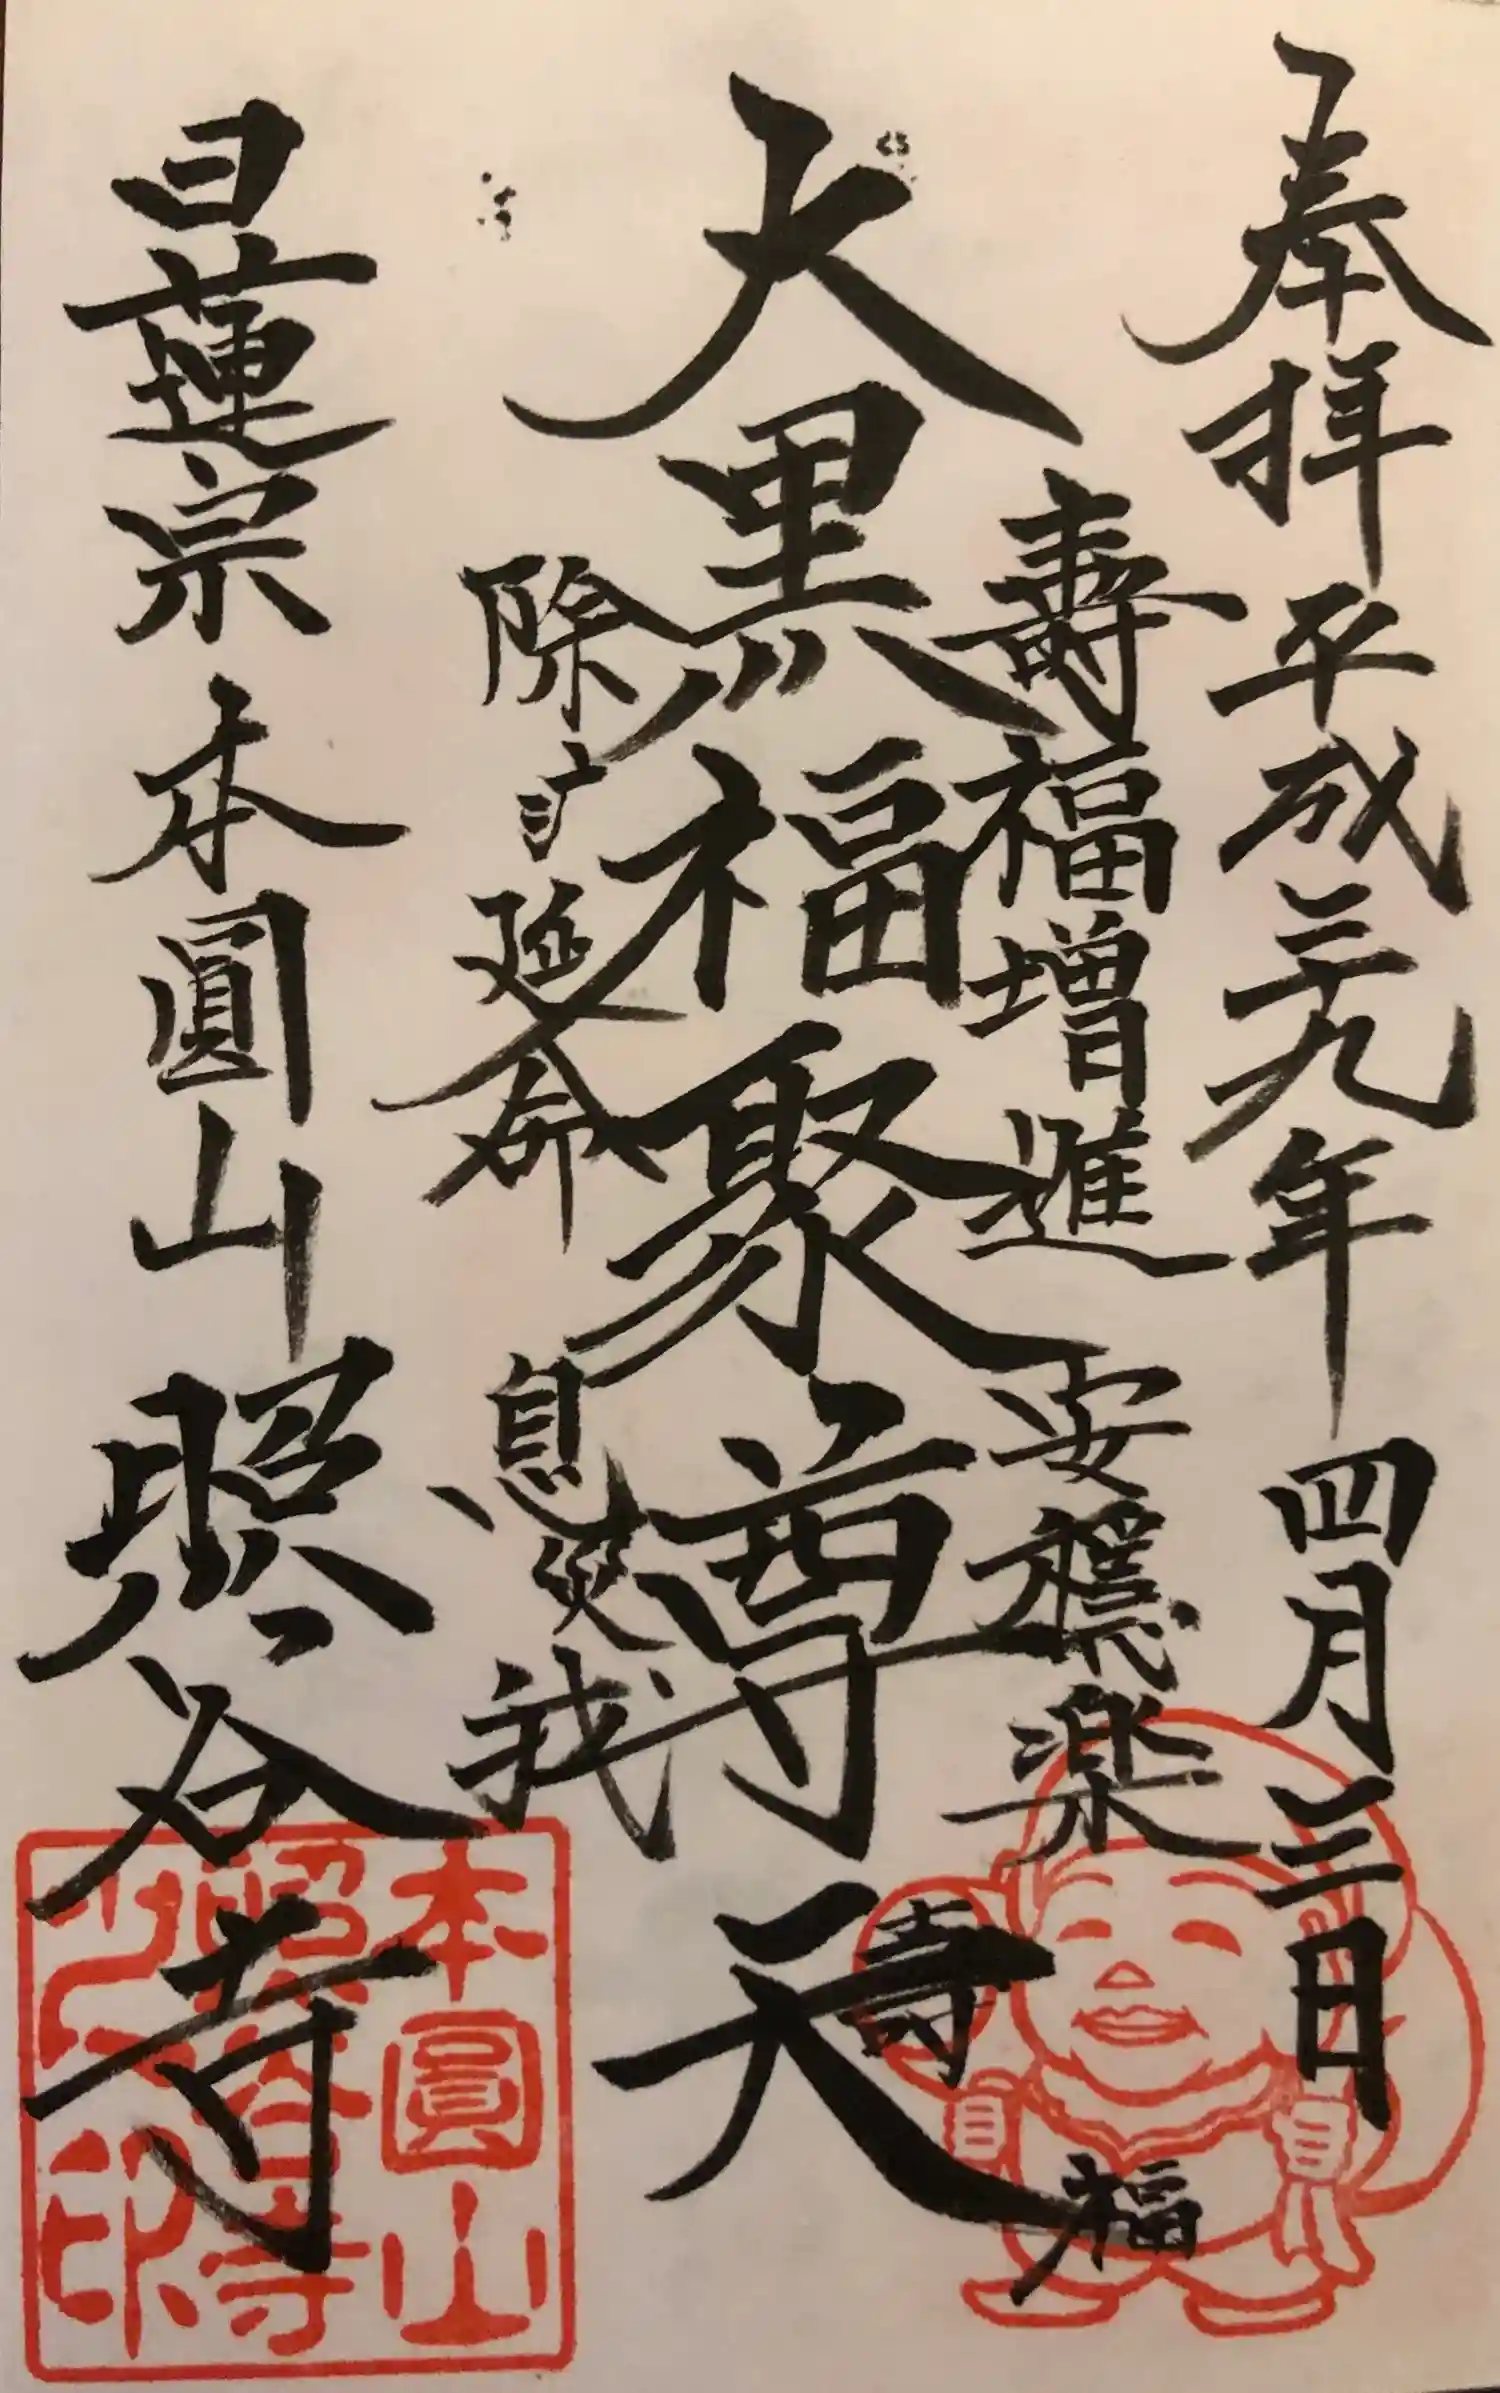 奉拝 平成二九年 四月三日
壽福増進 安穏楽
大黒福聚尊天
寿
福
除疒延命 息災
日蓮宗 本圓山 照谷寺
本圓山
照谷寺
之印